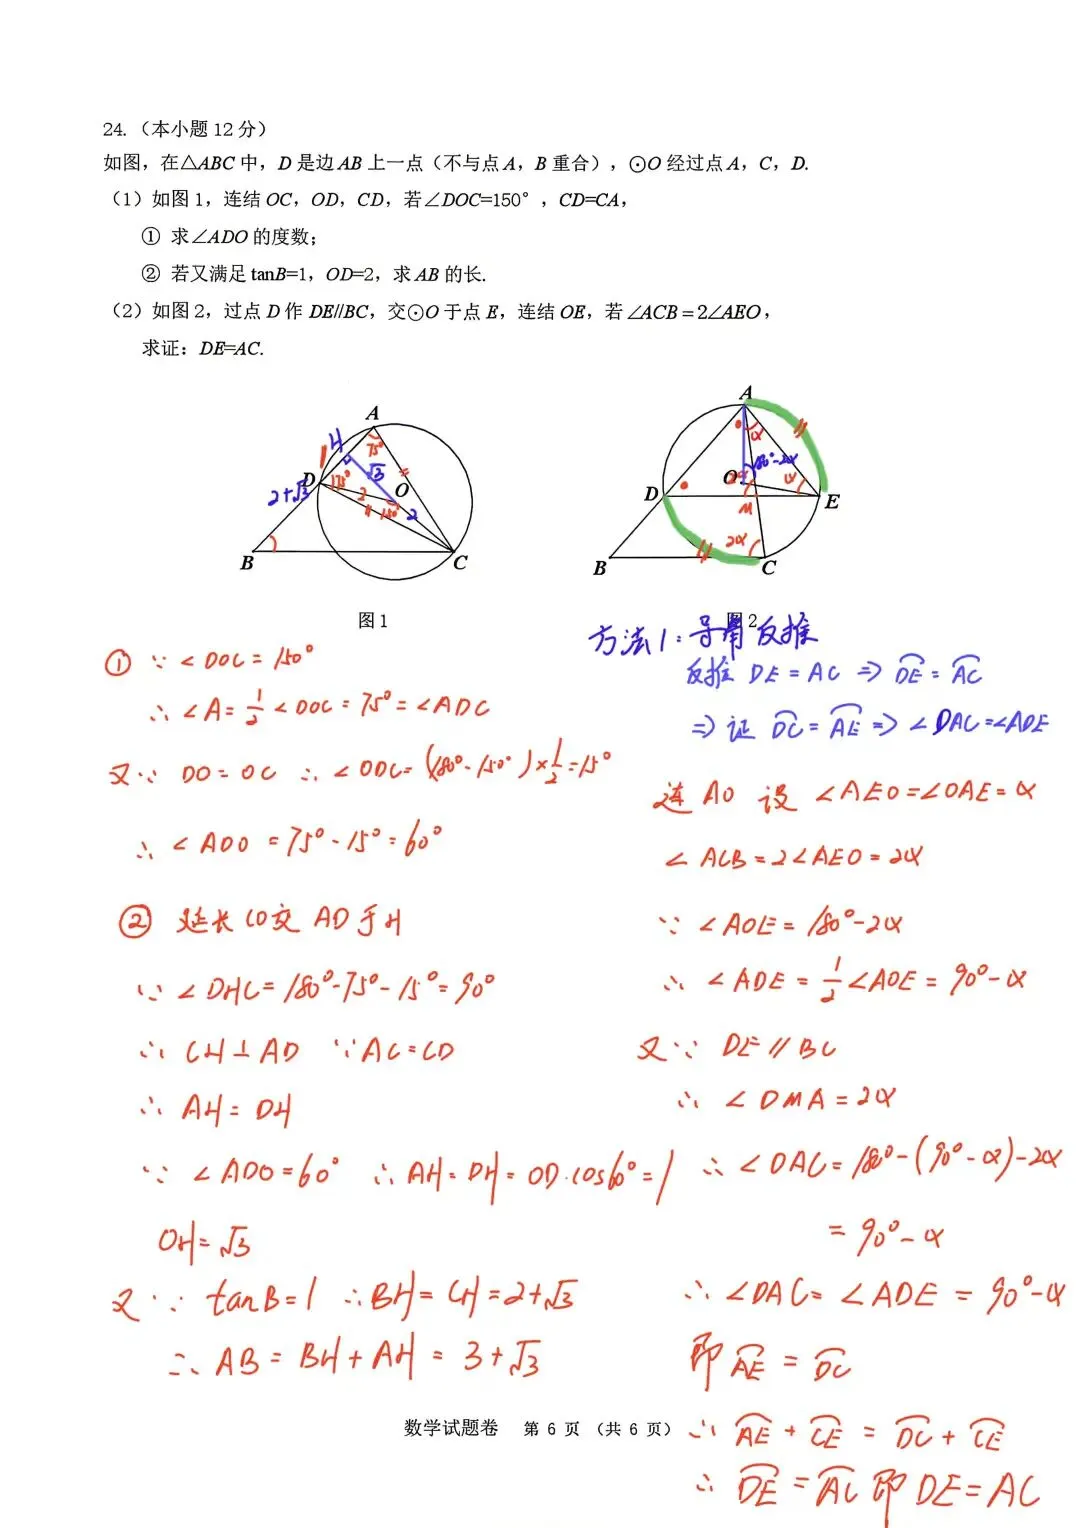 24.（本小题12分）
如图，在△ABC中，D是边AB上一点（不与点A，B重合），⊙O经过点A，C，D.
（1）如图1，连结OC，OD，CD，若∠DOC=150°，CD=CA，
① 求∠ADO的度数；
② 若又满足tanB=1，OD=2，求AB的长.
（2）如图2，过点D作DE//BC，交⊙O于点E，连结OE，若∠ACB=2∠AEO，
求证：DE=AC.
A
H
75°
1
√3
D
15°
O
2+√3
2
150°
2
B
C
图1
A
α
180°-2α
O
α
D
M
E
2α
B
C
图2
① ∵ ∠DOC = 150°
∴ ∠A = 1/2 ∠DOC = 75° = ∠ADC
又∵ DO = OC ∴ ∠ODC = (180°-150°)×1/2 = 15°
∴ ∠ADO = 75°-15° = 60°
② 延长CO交AD于H
∵ ∠DHC = 180°-75°-15° = 90°
∴ CH⊥AD ∵AC=CD
∴ AH = DH
∵ ∠ADO = 60° ∴ AH = DH = OD·cos60° = 1
OH = √3
又∵ tanB = 1 ∴ BH = CH = 2+√3
∴ AB = BH + AH = 3+√3
方法1：导角反推
反推 DE = AC ⇒ ⌒DE = ⌒AC
⇒ 证 ⌒DC = ⌒AE ⇒ ∠DAC = ∠ADE
连AO 设 ∠AEO = ∠OAE = α
∠ACB = 2∠AEO = 2α
∵ ∠AOE = 180°-2α
∴ ∠ADE = 1/2 ∠AOE = 90°-α
又∵ DE // BC
∴ ∠DMA = 2α
∴ ∠DAC = 180°-(90°-α)-2α
= 90°-α
∴ ∠DAC = ∠ADE = 90°-α
即 ⌒AE = ⌒DC
∴ ⌒AE + ⌒CE = ⌒DC + ⌒CE
∴ ⌒DE = ⌒AC 即 DE = AC
数学试题卷 第 6 页 （共 6 页）